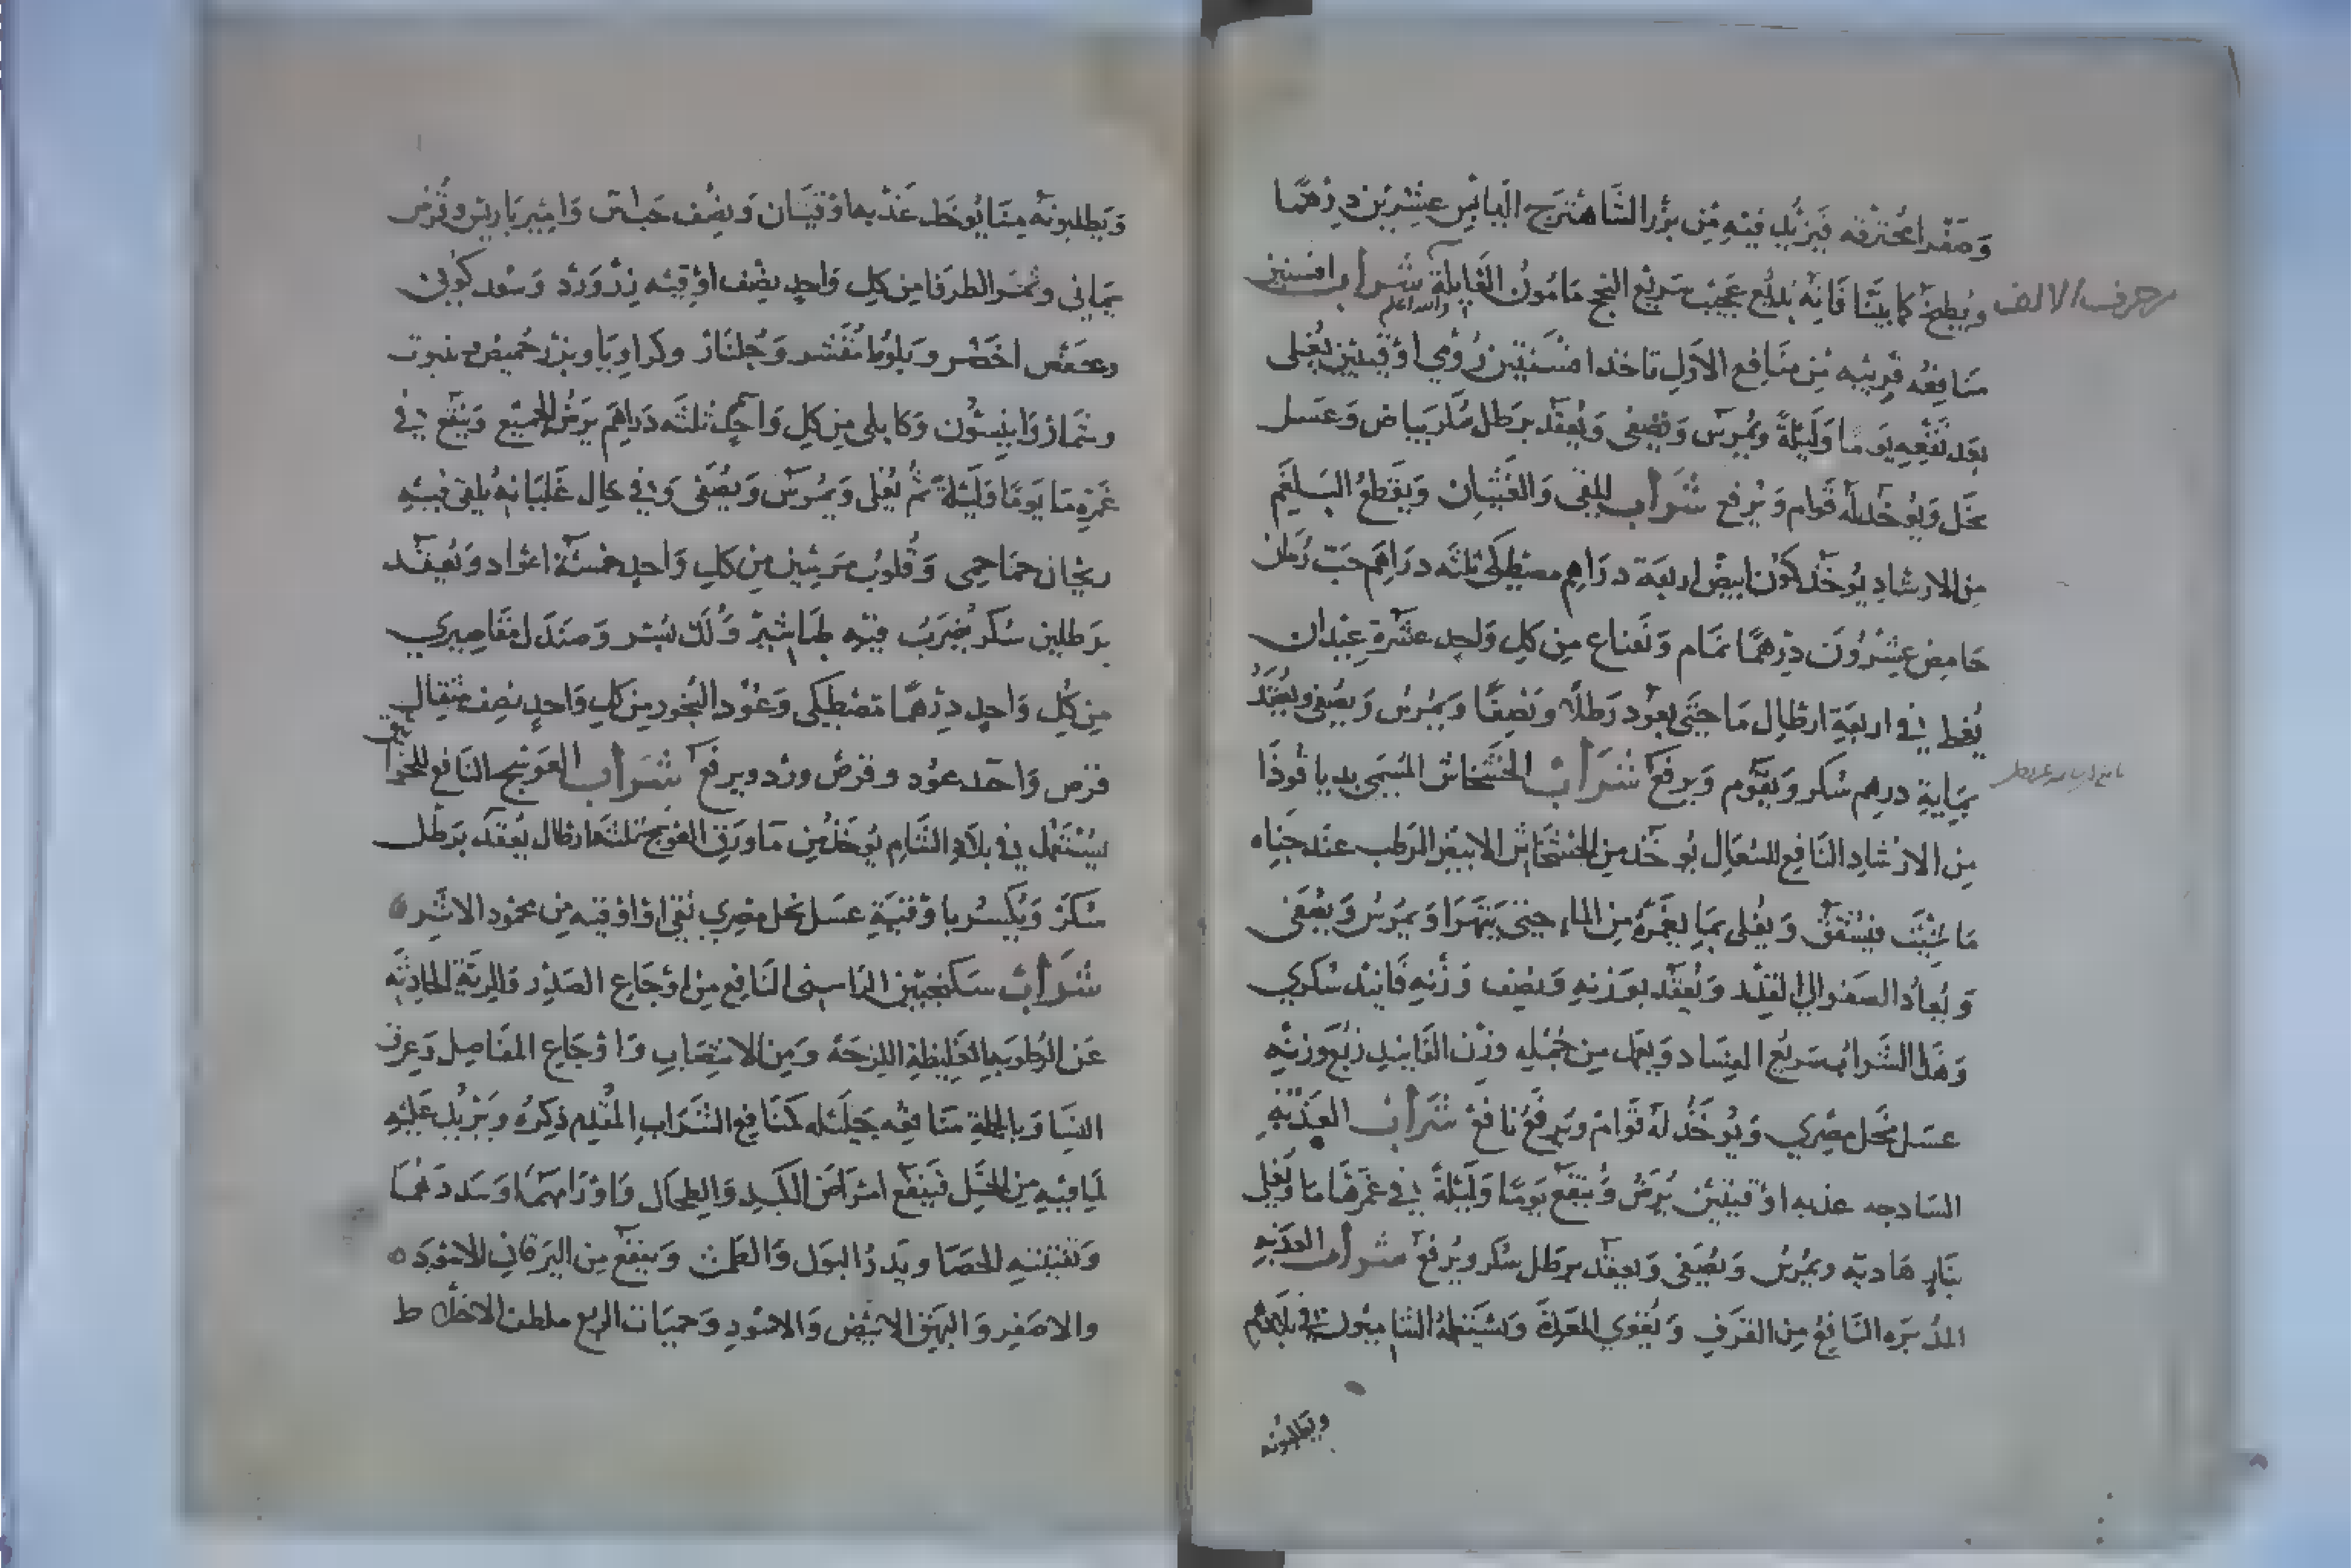 وَصَفْرا مُحترقه فَيَزيُد فيْهِ مِن بزْر الشَّاهتَرج اليَابِس عشِرين دِرْهَمًا
ويُطبخ كما بيَّنا فَانه بَديْع عَجيْب سَريْع النجح مَامُونُ الغَايِلة والله اعلم شراب افسنتين
من حرف الالف
مَنَافِعُه قَرِيبه مِن مَنَافع الاَول تاخد افسَنتين رُومي اوْقيتين يُغلى
بَعد نَقْعِه يَومًا وَليْلةً ويُمْرسَ وَيُصفى وَيُعقَد برَطل سُكر بياض وَعسَل
نحَل وَيُوخَد لَه قَوام وَيُرفع شَرَاب للقى وَالغَثيَان وَيَقطعُ البَلغَم
مِن الارشاد يُوخَذ كمون ابيَض اربعَة درَاهِم مصْطِكى ثلثَه درَاهِم حَبّ رُمان
حَامِض عِشْرُونَ دِرْهَمًا نمَام وَنَعْناع مِن كل وَاحِدٍ عشَرة عِيْدَان
يُغلى في اربَعَة ارطال مَا حَتى يعوُد رَطلاً وَنصِفًا وَيُمْرسُ وَيُصَفى ويُعقَدُ
بمايةِ درهم سُكر وَيُقَوم وَيرفَع شرَاب الخشخاش المسَمى بديا قودَا
مِن الارْشادِ النَافِع للسُعَال يُوخَد من الخشخَاش الابيَض الرَطب عندَ جَناه
مَا شيْت فيُشقق وَيُغلى بمَا يَغمُرَهُ مِن الماء حتى يَتهَرا وَيمرَسُ وَيُصْفَى
وَيُعَادُ الصفو الى القدْر وَيُعقَد بوَزنِهِ وَنصِف وَزْنِه فَانيْد سُكَّري
وَهَذَا الشَراب سَريْع الفسَاد وَيعمَل مِن جُمْلِه وزْن الفَانيْد رُبْعَ وزنهِ
عسَل نحَل مِصْري وَيُوخَذُ لَه قوَام وَيرفَعُ نافِعُ شرَاب العَذبهِ
السَّادجه عذبه اوْقيتيْن يُرَضُ وَيُنقَع يَومًا وَليْلةً في غمْرهَا مَا ويُغلى
بنَار هَاديَه ويُمْرسُ وَيُصَفى وَيعقَد برَطل سُكر ويُرفعُ شَرَاب العذَبهِ
المدُبَره النَافِعُ مِن القَرف وَيُقوي المَعدَة وَيسْتَعملهُ الشاميُون في بلادهم
ويطلبونه
وَيَطلبونَه مِنَا يُوخذ عَذبهِ اوْقيَتَان وَنصِف حَب اس وَامِيْربَارِيْس وقُرض
يَمَاني وَثمَر الطرفَا مِن كل وَاحِدٍ نصْف اوْقيّه زرّ وَرْد وَسُعد كوُفى
وَعَفص اخضَر وَبلوُط مُقَشر وَجُلنَار وكراويا وبزْر حُميْض
وسُمَاق وَانيسُون وَكابلى مِن كل وَاحِد ثلثَه دَراهِم يرَضُ الجميْع وَيُنقَع في
غمرهِ مَا يَومًا وَليْلَة ثم يُغلى وَيمُرسَ وَيصُفَى وَفي حَال غَليَانِه يُلقى فيْهِ
ريحَان حَمَاحمى وَقُلوُبُ مَرسِيْن مِن كل وَاحِدٍ خمسَة اعوَاد وَيُعقَد
برَطلين سُكر يُضرَبُ فيْهِ طَبَاشيْر وَلكّ بُسر وَصندَل مقَاصِيري
مِن كُل وَاحدٍ دِرْهَمًا مَصْطِكى وَعُوُد البخور مِن كل وَاحِدٍ نصِف مثقال
قرص وَاحَد عوُد وقرصْ ورْد ويرفعَ شَرَاب العَوسَج النَافع للحزاز
يُسْتعمَل في بلَاد الشَام يُوخَذُ مِن مَا وَرَق العَوْسَج ثلثَة ارطال يُعقَد برَطل
سُكرْ وَيُكْسرُ باوْقيَةِ عسَل نحَل مِصْري نقى اوْ اوْقيه مِن عمُود الاشَر
شَرَاب سكَنجبيْن الراسِن النَافِع مِن اوْجَاع الصَدْر وَالريَّة الحَادِثَه
عَن الرُطوبَه الغَليْظهِ اللزجَة وَمِن الانتِصَابِ وَاوْجَاعِ المفاصِل وَعِرق
النسَا وَبالجملة مَنَافعُه جَليْله كمَنَافِع الشَرَابِ المُقدِم ذكرُه وَيَزيْدُ عَليْهِ
لِمَا فيْهِ مِن الخَل فَينفَع امْرَاضَ الكَبدِ وَالطِحَال وَاوْرَامهمَا وَسددهُمَا
وَتفتيتهِ للحَصَا وَيدرُّ البَول وَالطمث وَينفَع مِن اليَرقَان الاسْوَد
والاصْفَر وَالبَهَق الابيَض وَالاسْودِ وَحميَات الربع ملطف الاخلاط